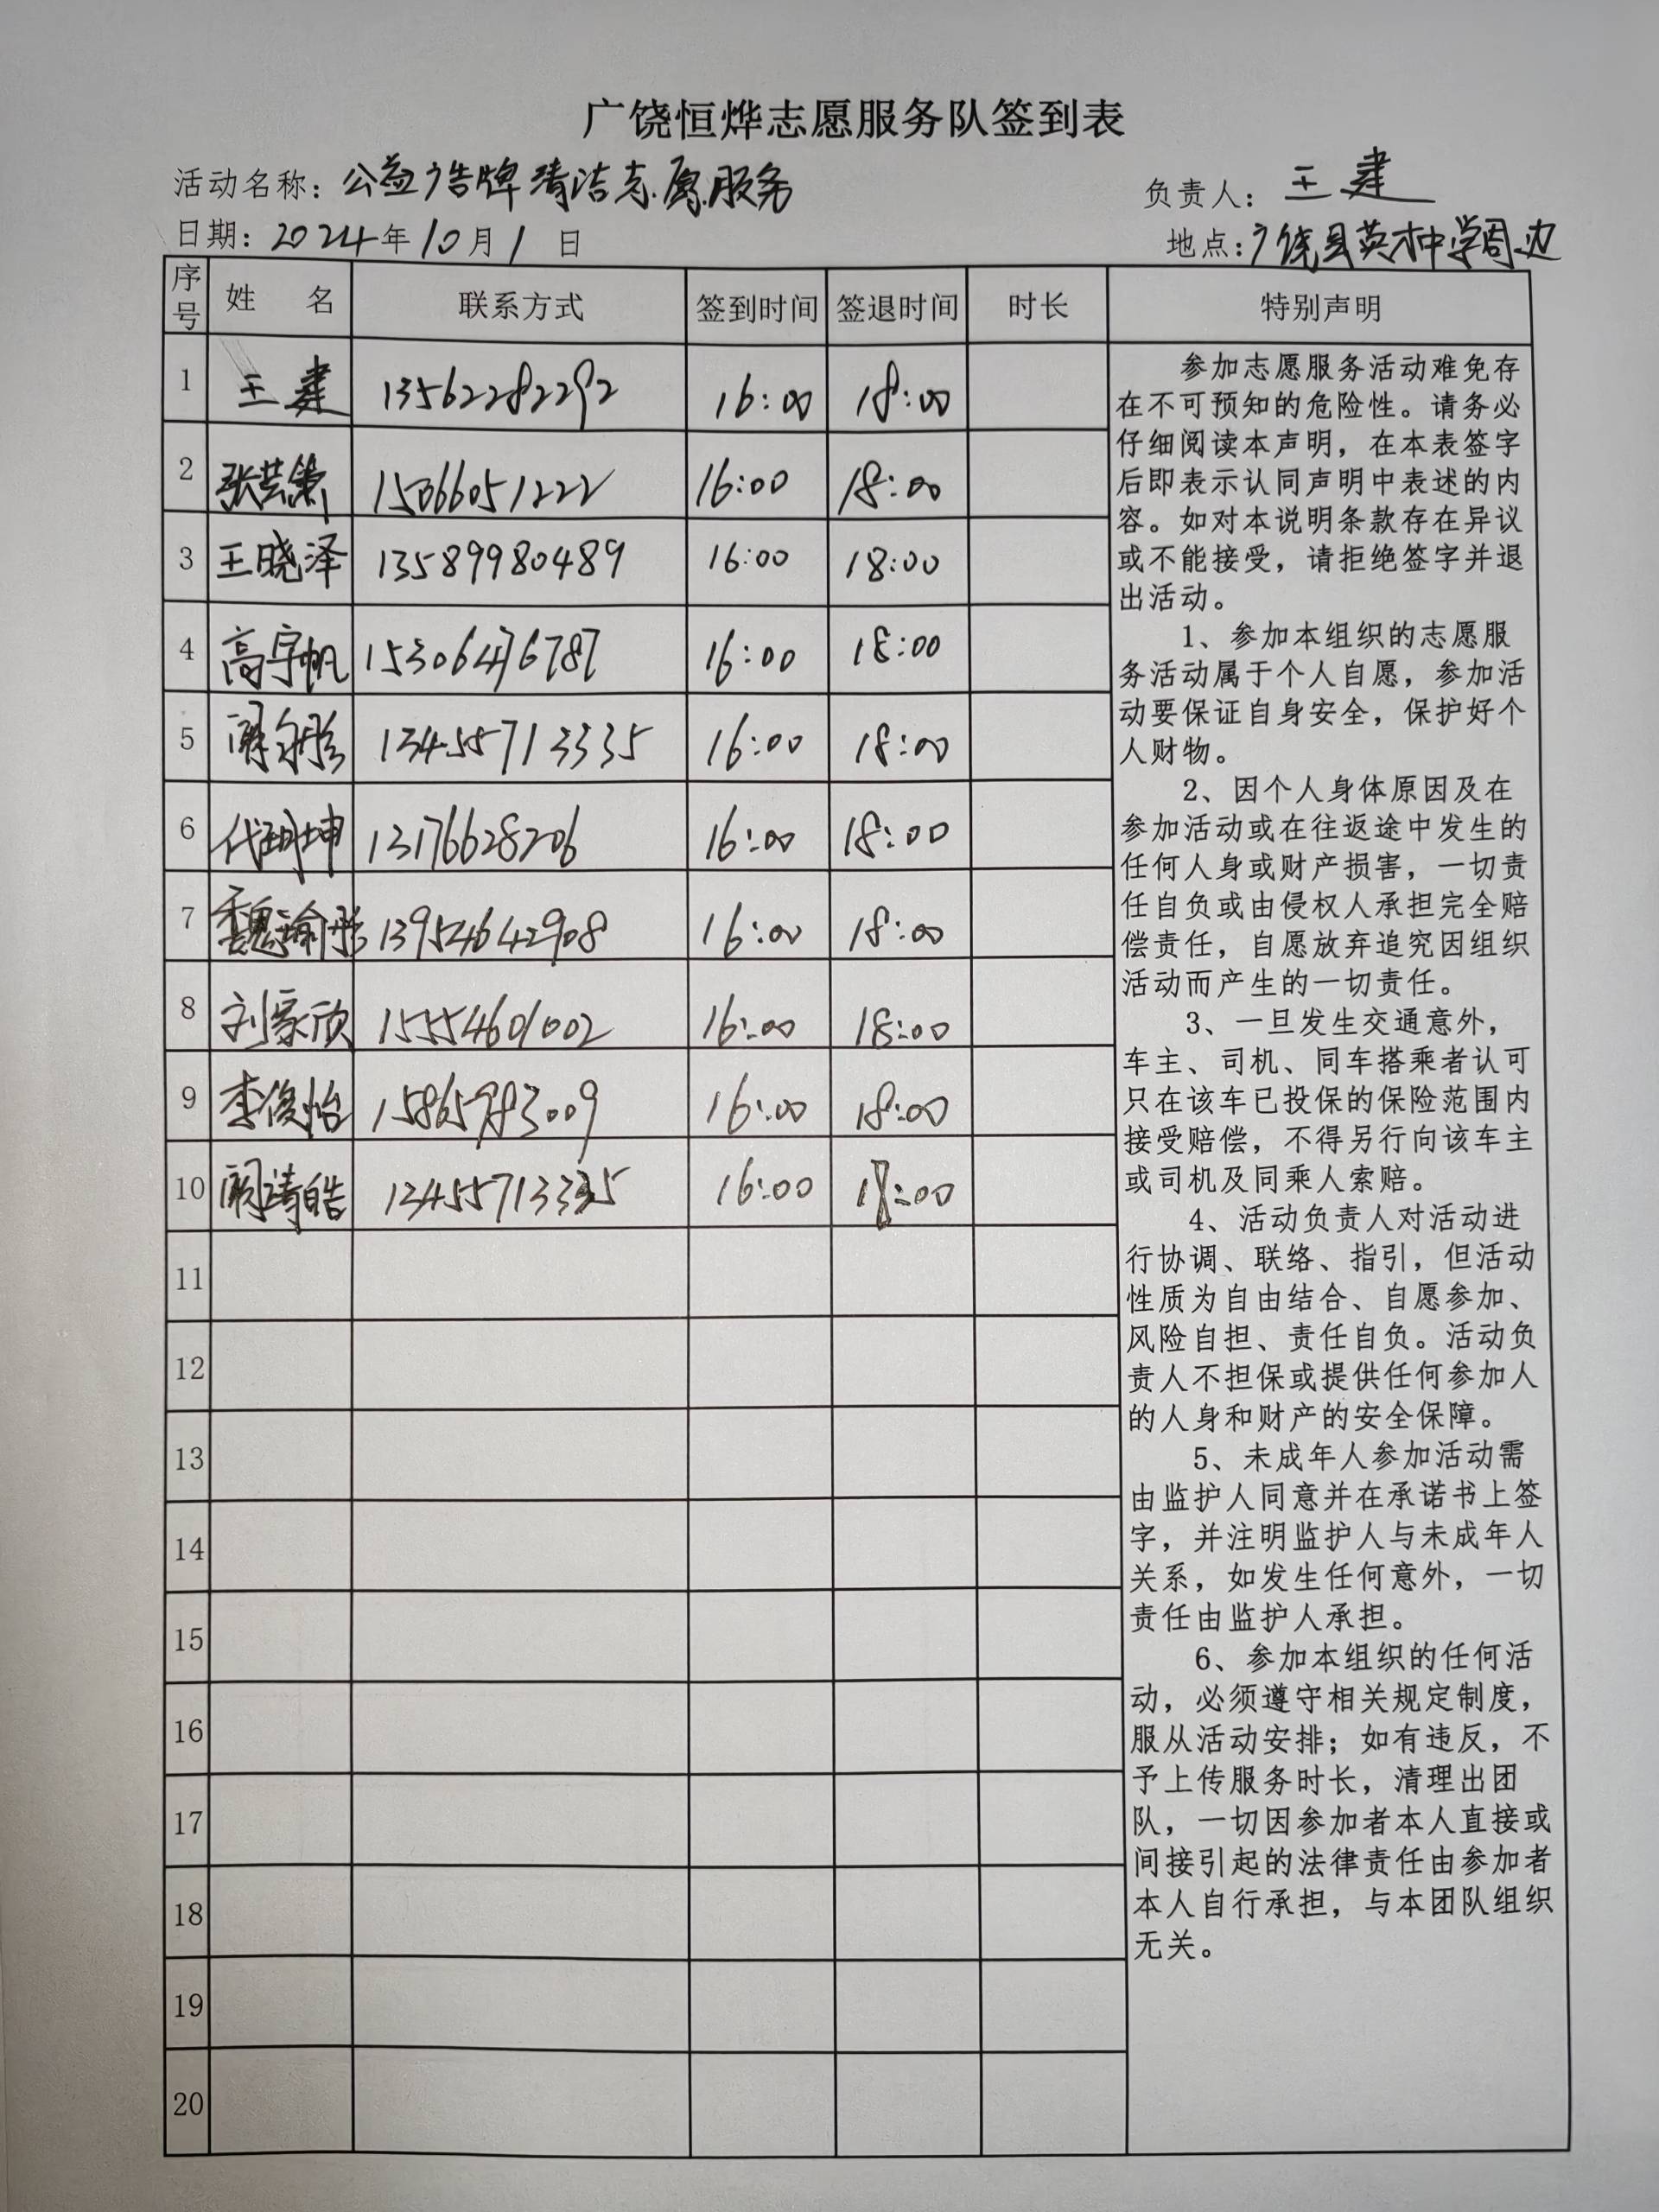 广饶恒烨志愿服务队签到表
活动名称：公益广告牌清洁志愿服务 负责人：王建
日期：2024年10月1日 地点：广饶县英才中学周边
序号 姓 名 联系方式 签到时间 签退时间 时长 特别声明
1 王建 13562282292 16:00 18:00
2 张芸 15066051222 16:00 18:00
3 王晓泽 13589980489 16:00 18:00
4 高宇帆 15306476787 16:00 18:00
5 13455713335 16:00 18:00
6 代坤 13176628206 16:00 18:00
7 魏瑜彤 13954642908 16:00 18:00
8 刘家欣 15554601002 16:00 18:00
9 李俊怡 15865983009 16:00 18:00
10 皓 13455713335 16:00 18:00
11
12
13
14
15
16
17
18
19
20
参加志愿服务活动难免存
在不可预知的危险性。请务必
仔细阅读本声明，在本表签字
后即表示认同声明中表述的内
容。如对本说明条款存在异议
或不能接受，请拒绝签字并退
出活动。
1、参加本组织的志愿服
务活动属于个人自愿，参加活
动要保证自身安全，保护好个
人财物。
2、因个人身体原因及在
参加活动或在往返途中发生的
任何人身或财产损害，一切责
任自负或由侵权人承担完全赔
偿责任，自愿放弃追究因组织
活动而产生的一切责任。
3、一旦发生交通意外，
车主、司机、同车搭乘者认可
只在该车已投保的保险范围内
接受赔偿，不得另行向该车主
或司机及同乘人索赔。
4、活动负责人对活动进
行协调、联络、指引，但活动
性质为自由结合、自愿参加、
风险自担、责任自负。活动负
责人不担保或提供任何参加人
的人身和财产的安全保障。
5、未成年人参加活动需
由监护人同意并在承诺书上签
字，并注明监护人与未成年人
关系，如发生任何意外，一切
责任由监护人承担。
6、参加本组织的任何活
动，必须遵守相关规定制度，
服从活动安排；如有违反，不
予上传服务时长，清理出团
队，一切因参加者本人直接或
间接引起的法律责任由参加者
本人自行承担，与本团队组织
无关。